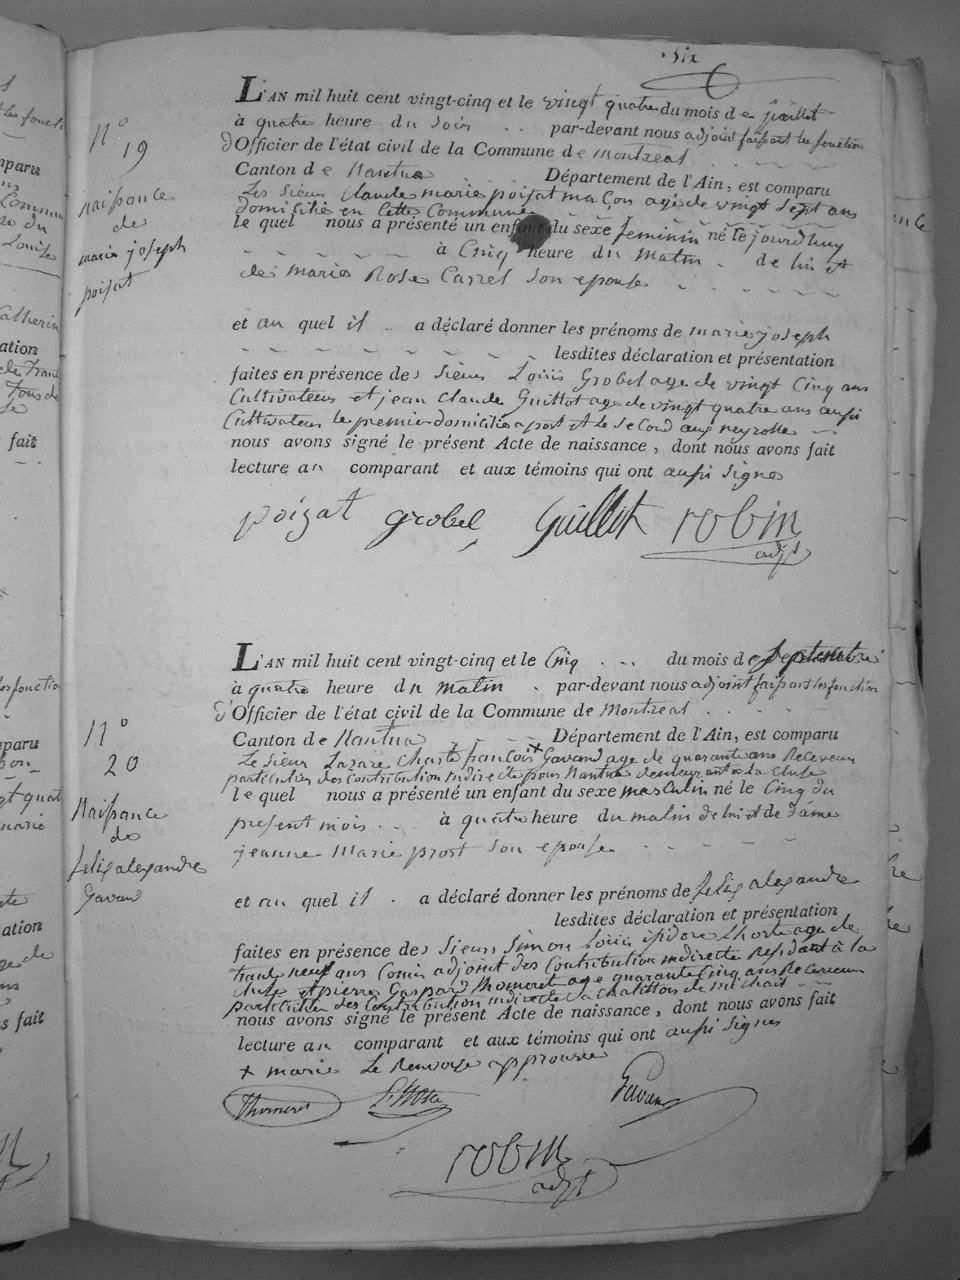 six
6
N° 19
naissance
de
marie joseph
poizat
L'AN mil huit cent vingt-cinq et le vingt quatre du mois de juillet
à quatre heure du soir par-devant nous adjoint faisant les fonction
d'Officier de l'état civil de la Commune de Montreal
Canton de Nantua Département de l'Ain, est comparu
Les Sieur Claude marie poizat maçon age de vingt sept ans
domicilié en Cette Commune
le quel nous a présenté un enfant du sexe feminin né le jourdhuy
à Cinq heure du matin de lui et
de marie Rose Carrel Son epouse
et au quel il a déclaré donner les prénoms de marie joseph
lesdites déclaration et présentation
faites en présence des Sieurs Louis Grobel age de vingt Cinq ans
Cultivateur et jean Claude Guillot age de vingt quatre ans aussi
Cultivateur le premier domicilié a port et le Second aux neyrolle
nous avons signé le présent Acte de naissance, dont nous avons fait
lecture au comparant et aux témoins qui ont aussi signes
poizat grobel Guillot robin
adjt
N° 20
Naissance
de
felix alexandre
Gavand
L'AN mil huit cent vingt-cinq et le Cinq du mois de Septembre
à quatre heure du matin par-devant nous adjoint faisant les fonction
d'Officier de l'état civil de la Commune de Montreal
Canton de Nantua Département de l'Ain, est comparu
Le Sieur Lazare Charle françois + Gavand age de quarante ans Receveur
particulier des Contribution indirecte pour Nantua demeurant a La Cluse
le quel nous a présenté un enfant du sexe masculin né le Cinq du
present mois à quatre heure du matin de lui et de dame
jeanne Marie prost Son epouse
et au quel il a déclaré donner les prénoms de felix alexandre
lesdites déclaration et présentation
faites en présence des Sieurs Simon Louis isidore Lhoste age de
trante neuf ans Comis adjoint des Contribution indirecte Residant à la
Cluse et pierre Gaspard Thomeret age quarante Cinq ans Receveur
particulier des Contribution indirecte a Chatillon de michail
nous avons signé le présent Acte de naissance, dont nous avons fait
lecture au comparant et aux témoins qui ont aussi signes
+ marie Le Renvoye approuvée
Thomeret Lhoste Gavand
robin
adjt